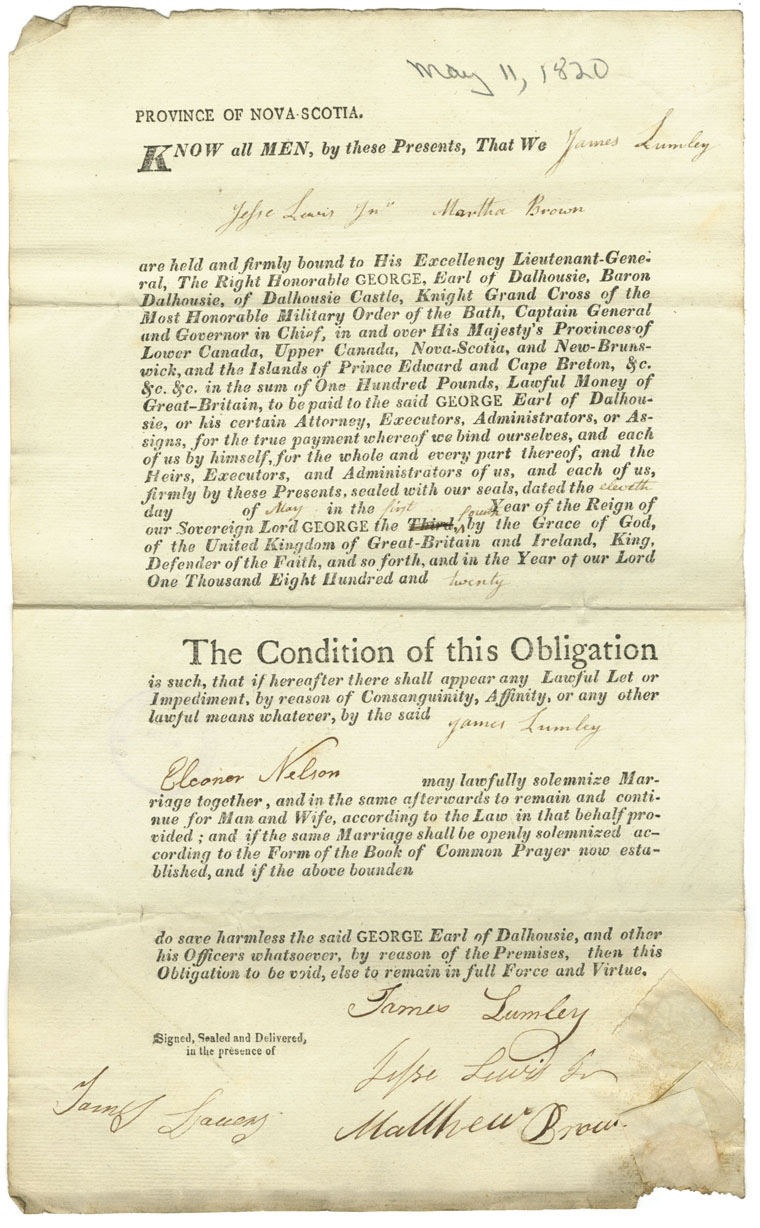 May 11, 1820
PROVINCE OF NOVA-SCOTIA.
KNOW all MEN, by these Presents, That We James Lumley
Jesse Lewis Jnr Martha Brown
are held and firmly bound to His Excellency Lieutenant-Gene-
ral, The Right Honorable GEORGE, Earl of Dalhousie, Baron
Dalhousie, of Dalhousie Castle, Knight Grand Cross of the
Most Honorable Military Order of the Bath, Captain General
and Governor in Chief, in and over His Majesty's Provinces of
Lower Canada, Upper Canada, Nova-Scotia, and New-Bruns-
wick, and the Islands of Prince Edward and Cape Breton, &c.
&c. &c. in the sum of One Hundred Pounds, Lawful Money of
Great-Britain, to be paid to the said GEORGE Earl of Dalhou-
sie, or his certain Attorney, Executors, Administrators, or As-
signs, for the true payment whereof we bind ourselves, and each
of us by himself, for the whole and every part thereof, and the
Heirs, Executors, and Administrators of us, and each of us,
firmly by these Presents, sealed with our seals, dated the eleveth
day of May in the first Year of the Reign of
our Sovereign Lord GEORGE the Third, fourth by the Grace of God,
of the United Kingdom of Great-Britain and Ireland, King,
Defender of the Faith, and so forth, and in the Year of our Lord
One Thousand Eight Hundred and twenty
The Condition of this Obligation
is such, that if hereafter there shall appear any Lawful Let or
Impediment, by reason of Consanguinity, Affinity, or any other
lawful means whatever, by the said James Lumley
Eleonor Nelson may lawfully solemnize Mar-
riage together, and in the same afterwards to remain and conti-
nue for Man and Wife, according to the Law in that behalf pro-
vided ; and if the same Marriage shall be openly solemnized ac-
cording to the Form of the Book of Common Prayer now esta-
blished, and if the above bounden
do save harmless the said GEORGE Earl of Dalhousie, and other
his Officers whatsoever, by reason of the Premises, then this
Obligation to be void, else to remain in full Force and Virtue.
James Lumley
Signed, Sealed and Delivered,
in the presence of
Jesse Lewis Jr
James
Matthew Brown